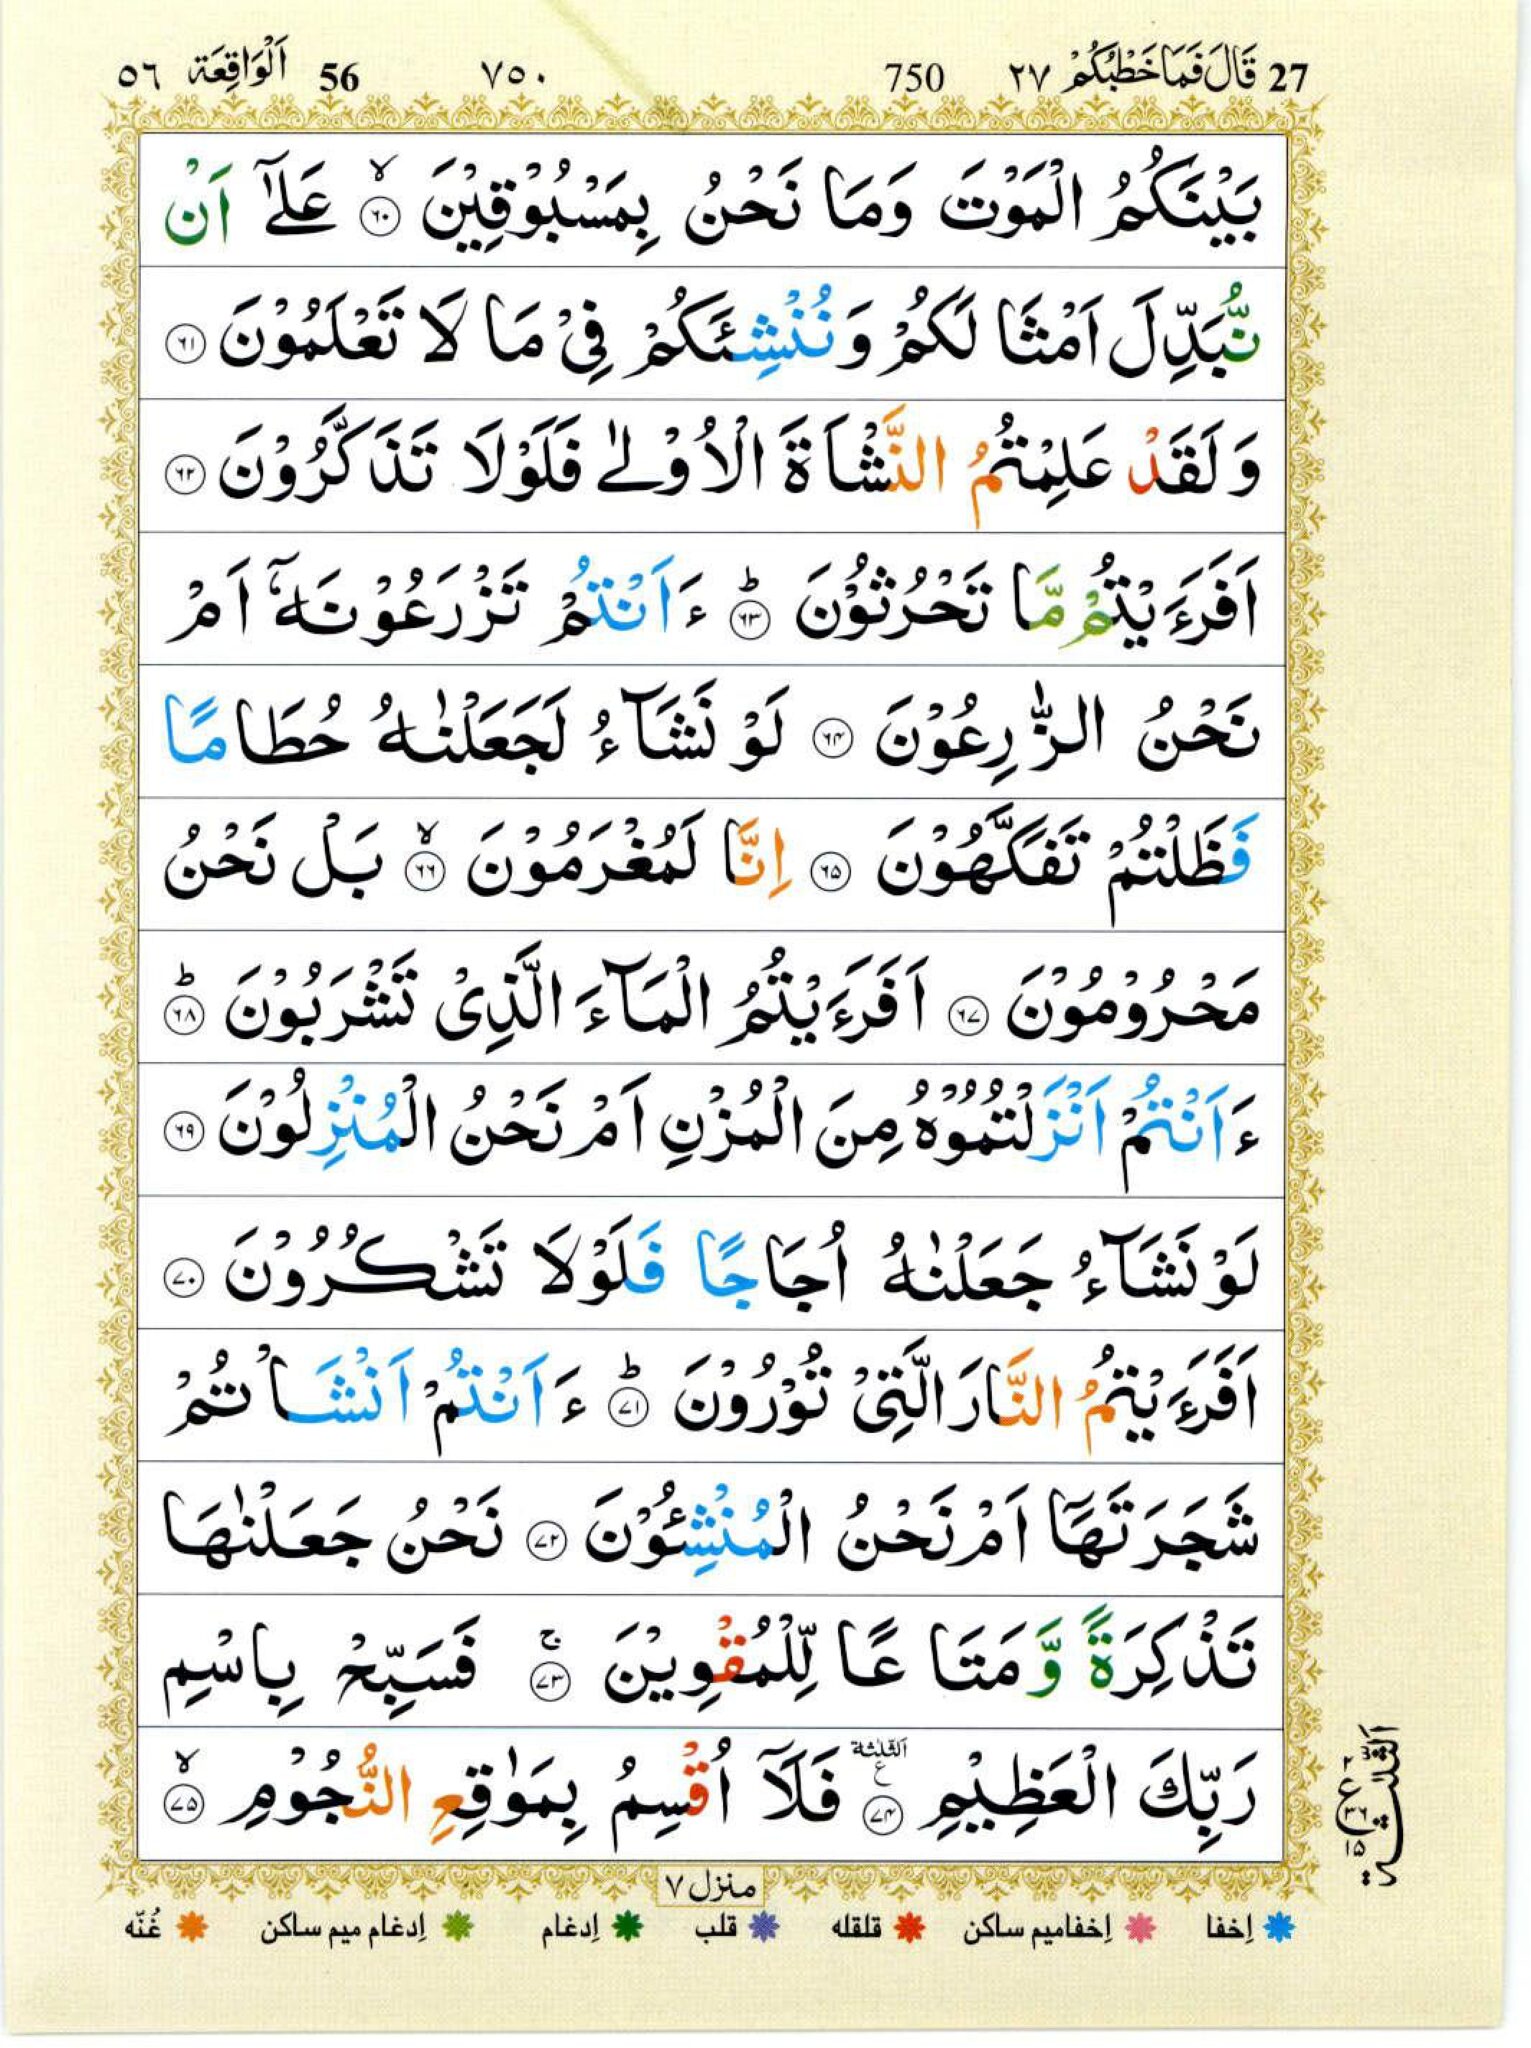 27 قَالَ فَمَا خَطْبُكُمْ ٢٧ 750 ٧٥٠ 56 اَلْوَاقِعَة ٥٦
بَيْنَكُمُ الْمَوْتَ وَمَا نَحْنُ بِمَسْبُوْقِيْنَ ۙ﴿۶۰﴾ عَلٰٓی اَنْ
نُّبَدِّلَ اَمْثَا لَكُمْ وَنُنْشِئَكُمْ فِیْ مَا لَا تَعْلَمُوْنَ ﴿۶۱﴾
وَلَقَدْ عَلِمْتُمُ النَّشْاَةَ الْاُوْلٰی فَلَوْلَا تَذَكَّرُوْنَ ﴿۶۲﴾
اَفَرَءَيْتُمْ مَّا تَحْرُثُوْنَ ؕ﴿۶۳﴾ ءَاَنْتُمْ تَزْرَعُوْنَهٗۤ اَمْ
نَحْنُ الزّٰرِعُوْنَ ﴿۶۴﴾ لَوْ نَشَآءُ لَجَعَلْنٰهُ حُطَامًا
فَظَلْتُمْ تَفَكَّهُوْنَ ﴿۶۵﴾ اِنَّا لَمُغْرَمُوْنَ ۙ﴿۶۶﴾ بَلْ نَحْنُ
مَحْرُوْمُوْنَ ﴿۶۷﴾ اَفَرَءَيْتُمُ الْمَآءَ الَّذِیْ تَشْرَبُوْنَ ؕ﴿۶۸﴾
ءَاَنْتُمْ اَنْزَلْتُمُوْهُ مِنَ الْمُزْنِ اَمْ نَحْنُ الْمُنْزِلُوْنَ ﴿۶۹﴾
لَوْ نَشَآءُ جَعَلْنٰهُ اُجَاجًا فَلَوْلَا تَشْكُرُوْنَ ﴿۷۰﴾
اَفَرَءَيْتُمُ النَّارَ الَّتِیْ تُوْرُوْنَ ؕ﴿۷۱﴾ ءَاَنْتُمْ اَنْشَاْتُمْ
شَجَرَتَهَاۤ اَمْ نَحْنُ الْمُنْشِئُوْنَ ﴿۷۲﴾ نَحْنُ جَعَلْنٰهَا
تَذْكِرَةً وَّمَتَا عًا لِّلْمُقْوِيْنَ ۚ﴿۷۳﴾ فَسَبِّحْ بِاسْمِ
رَبِّكَ الْعَظِيْمِ الثلثة ع﴿۷۴﴾ فَلَاۤ اُقْسِمُ بِمَوٰقِعِ النُّجُوْمِ ۙ﴿۷۵﴾
اَلثّلٰثة ٢ ع ٣٦ ١٥
منزل ٧
اِخفا اِخفامیم ساکن قلقله قلب اِدغام اِدغام میم ساکن غُنّه